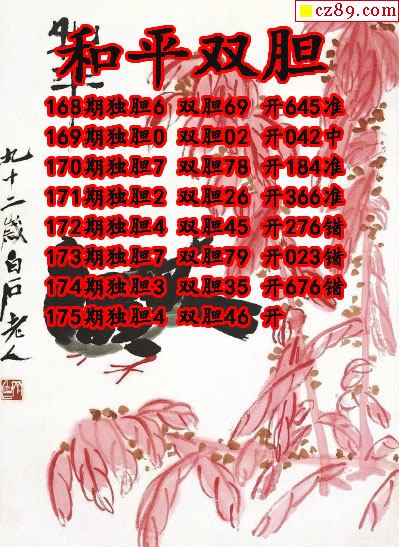 cz89.com
和平
和平双胆
168期独胆6 双胆69 开645准
169期独胆0 双胆02 开042中
170期独胆7 双胆78 开184准
171期独胆2 双胆26 开366准
172期独胆4 双胆45 开276错
173期独胆7 双胆79 开023错
174期独胆3 双胆35 开676错
175期独胆4 双胆46 开
九十二岁白石老人